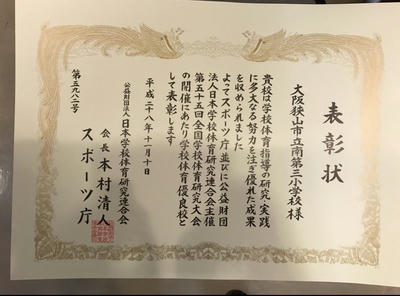 表彰状
大阪狭山市立南第三小学校様
貴校は学校体育指導の研究・実践
に多大なる努力を注ぎ優れた成果
を収められました
よってスポーツ庁並びに公益財団
法人日本学校体育研究連合会主催
第五十五回全国学校体育研究大会
の開催にあたり学校体育優良校と
して表彰します
平成二十八年十一月十日
公益財団法人日本学校体育研究連合会
会長本村清人
スポーツ庁
第五九八二号